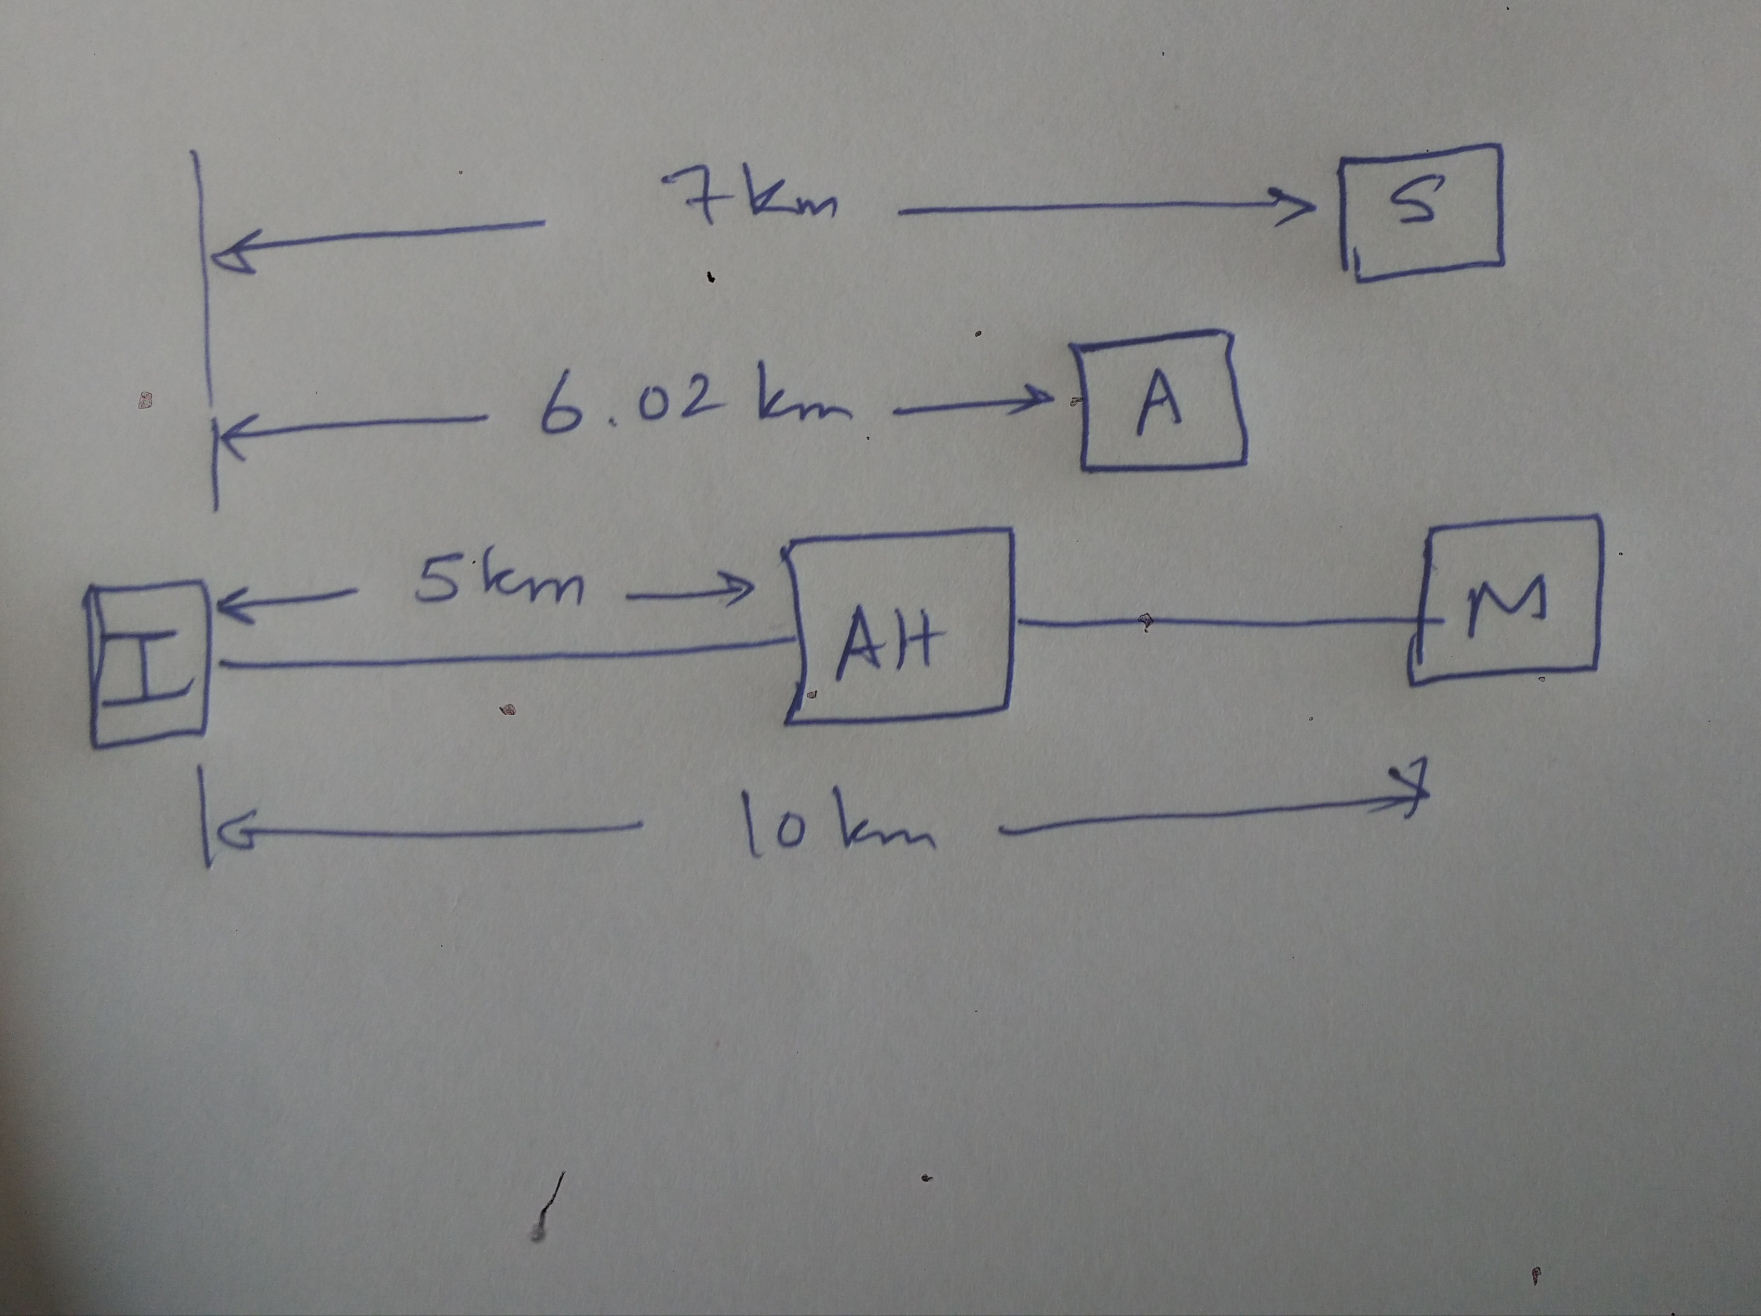 7km S
6.02 km A
5km
H AH M
10km